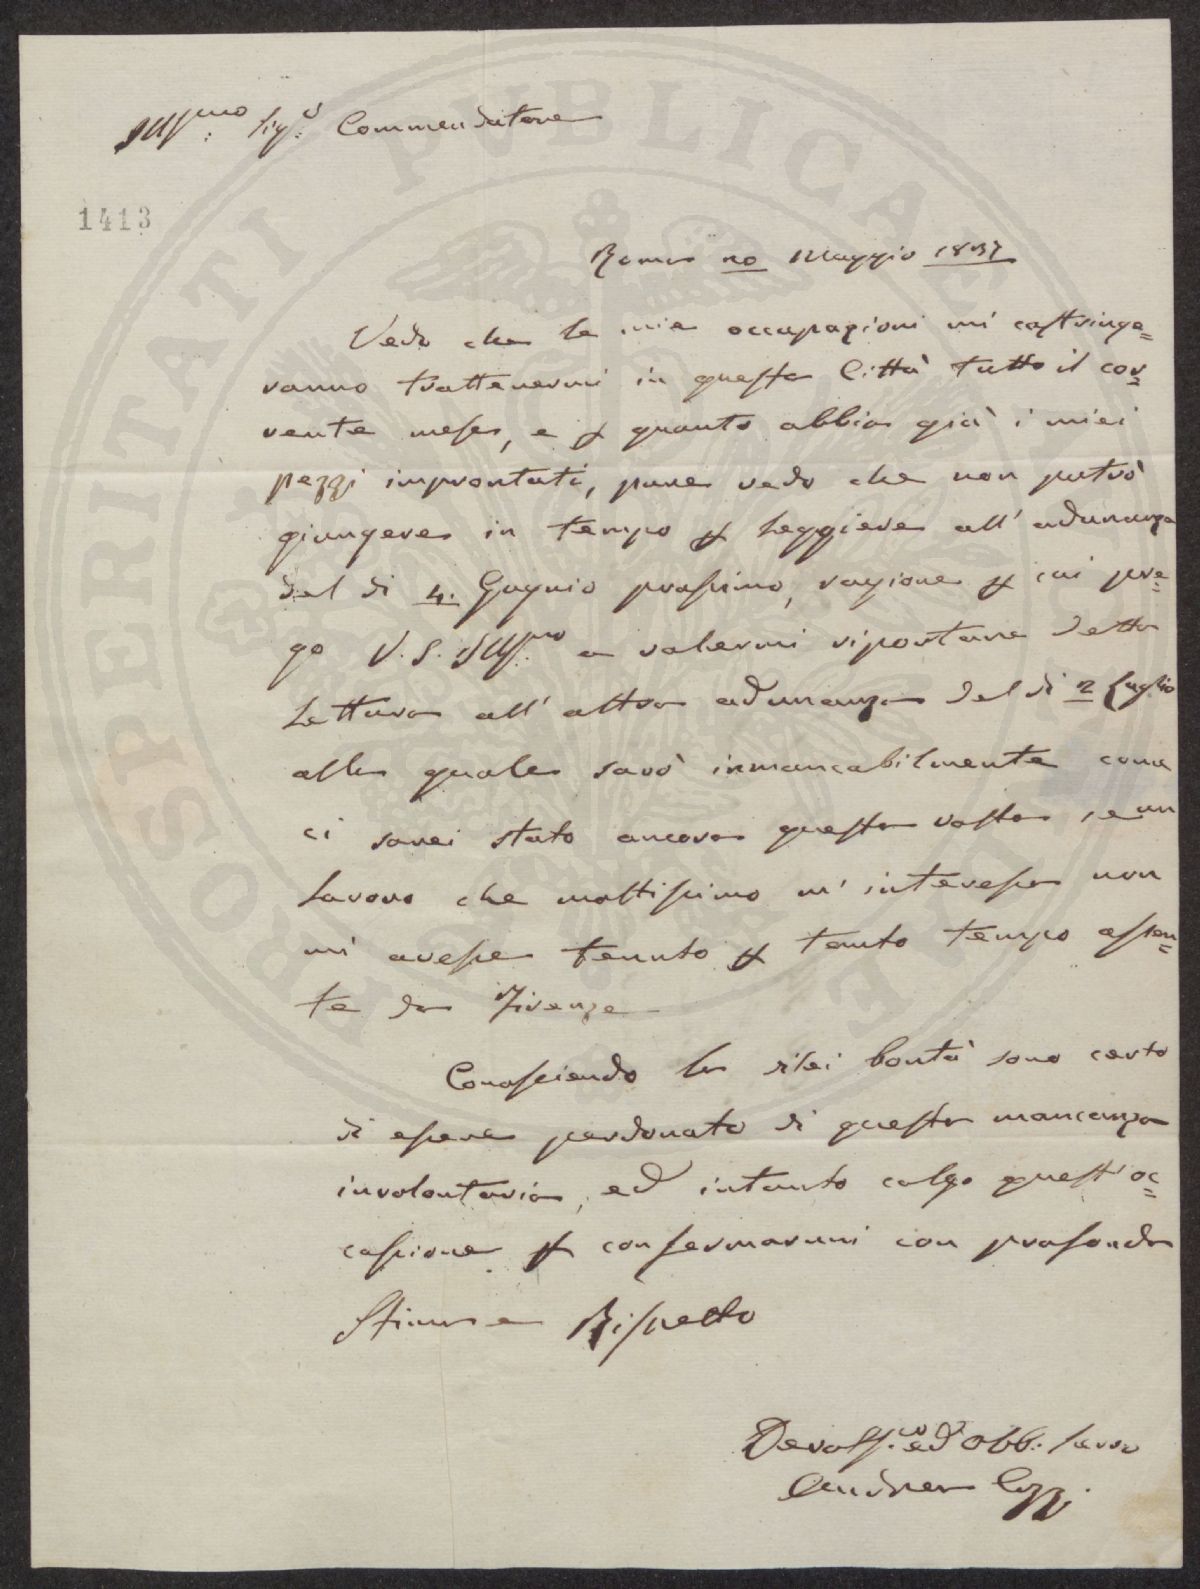 Ill:mo Sig:e Commendatore
1413
Roma 20 Maggio 1837
Vedo che le mie occupazioni mi costringe=
ranno trattenermi in questa Città tutto il cor=
rente mese, e p quanto abbia già i miei
pezzi improntati, pure vedo che non potrò
giungere in tempo p leggiere all' adunanza
del dì 4. Gugnio prossimo, ragione p cui pre=
go V. S. Ill:ma a volermi riportare detta
Lettura all' altra adunanza del dì 2 Luglio
alla quale sarò inmancabilmente come
ci sarei stato ancora questa volta se un
lavoro che moltissimo m' interessa non
mi avesse tenuto p tanto tempo assen=
te da Firenze
Conosciendo la di lei bontà sono certo
di essere perdonato di questa mancanza
involontaria, ed intanto colgo quest' oc=
casione p confermarmi con profonda
Stima e Rispetto
Devotis:o ed Obb: Servo
Andrea Cozzi
PROSPERITATI PVBLICAE